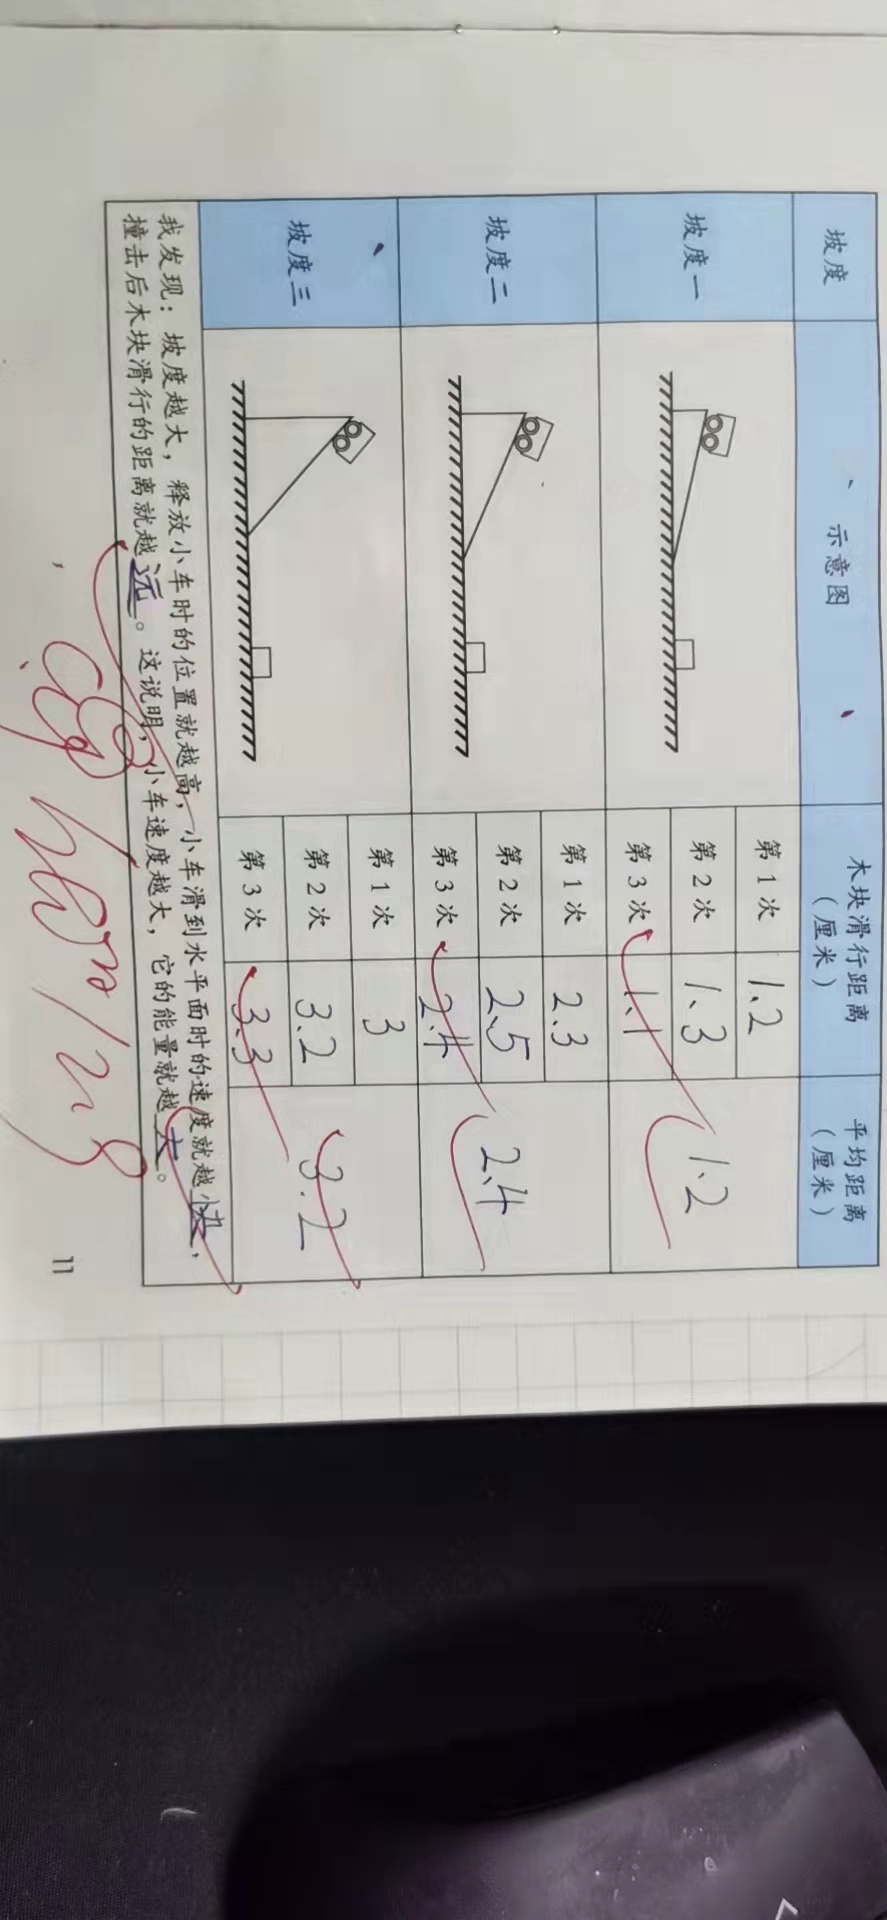 坡度 示意图 木块滑行距离（厘米） 平均距离（厘米）
坡度一 第1次 1.2 1.2
第2次 1.3
第3次 1.1
坡度二 第1次 2.3 2.4
第2次 2.5
第3次 2.4
坡度三 第1次 3 3.2
第2次 3.2
第3次 3.3
我发现：坡度越大，释放小车时的位置就越高，小车滑到水平面时的速度就越快，
撞击后木块滑行的距离就越远。这说明，小车速度越大，它的能量就越大。
11